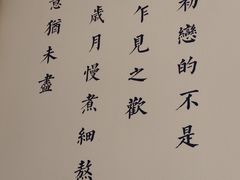 初戀的不是
乍見之歡
歲月慢煮細熬
意猶未盡